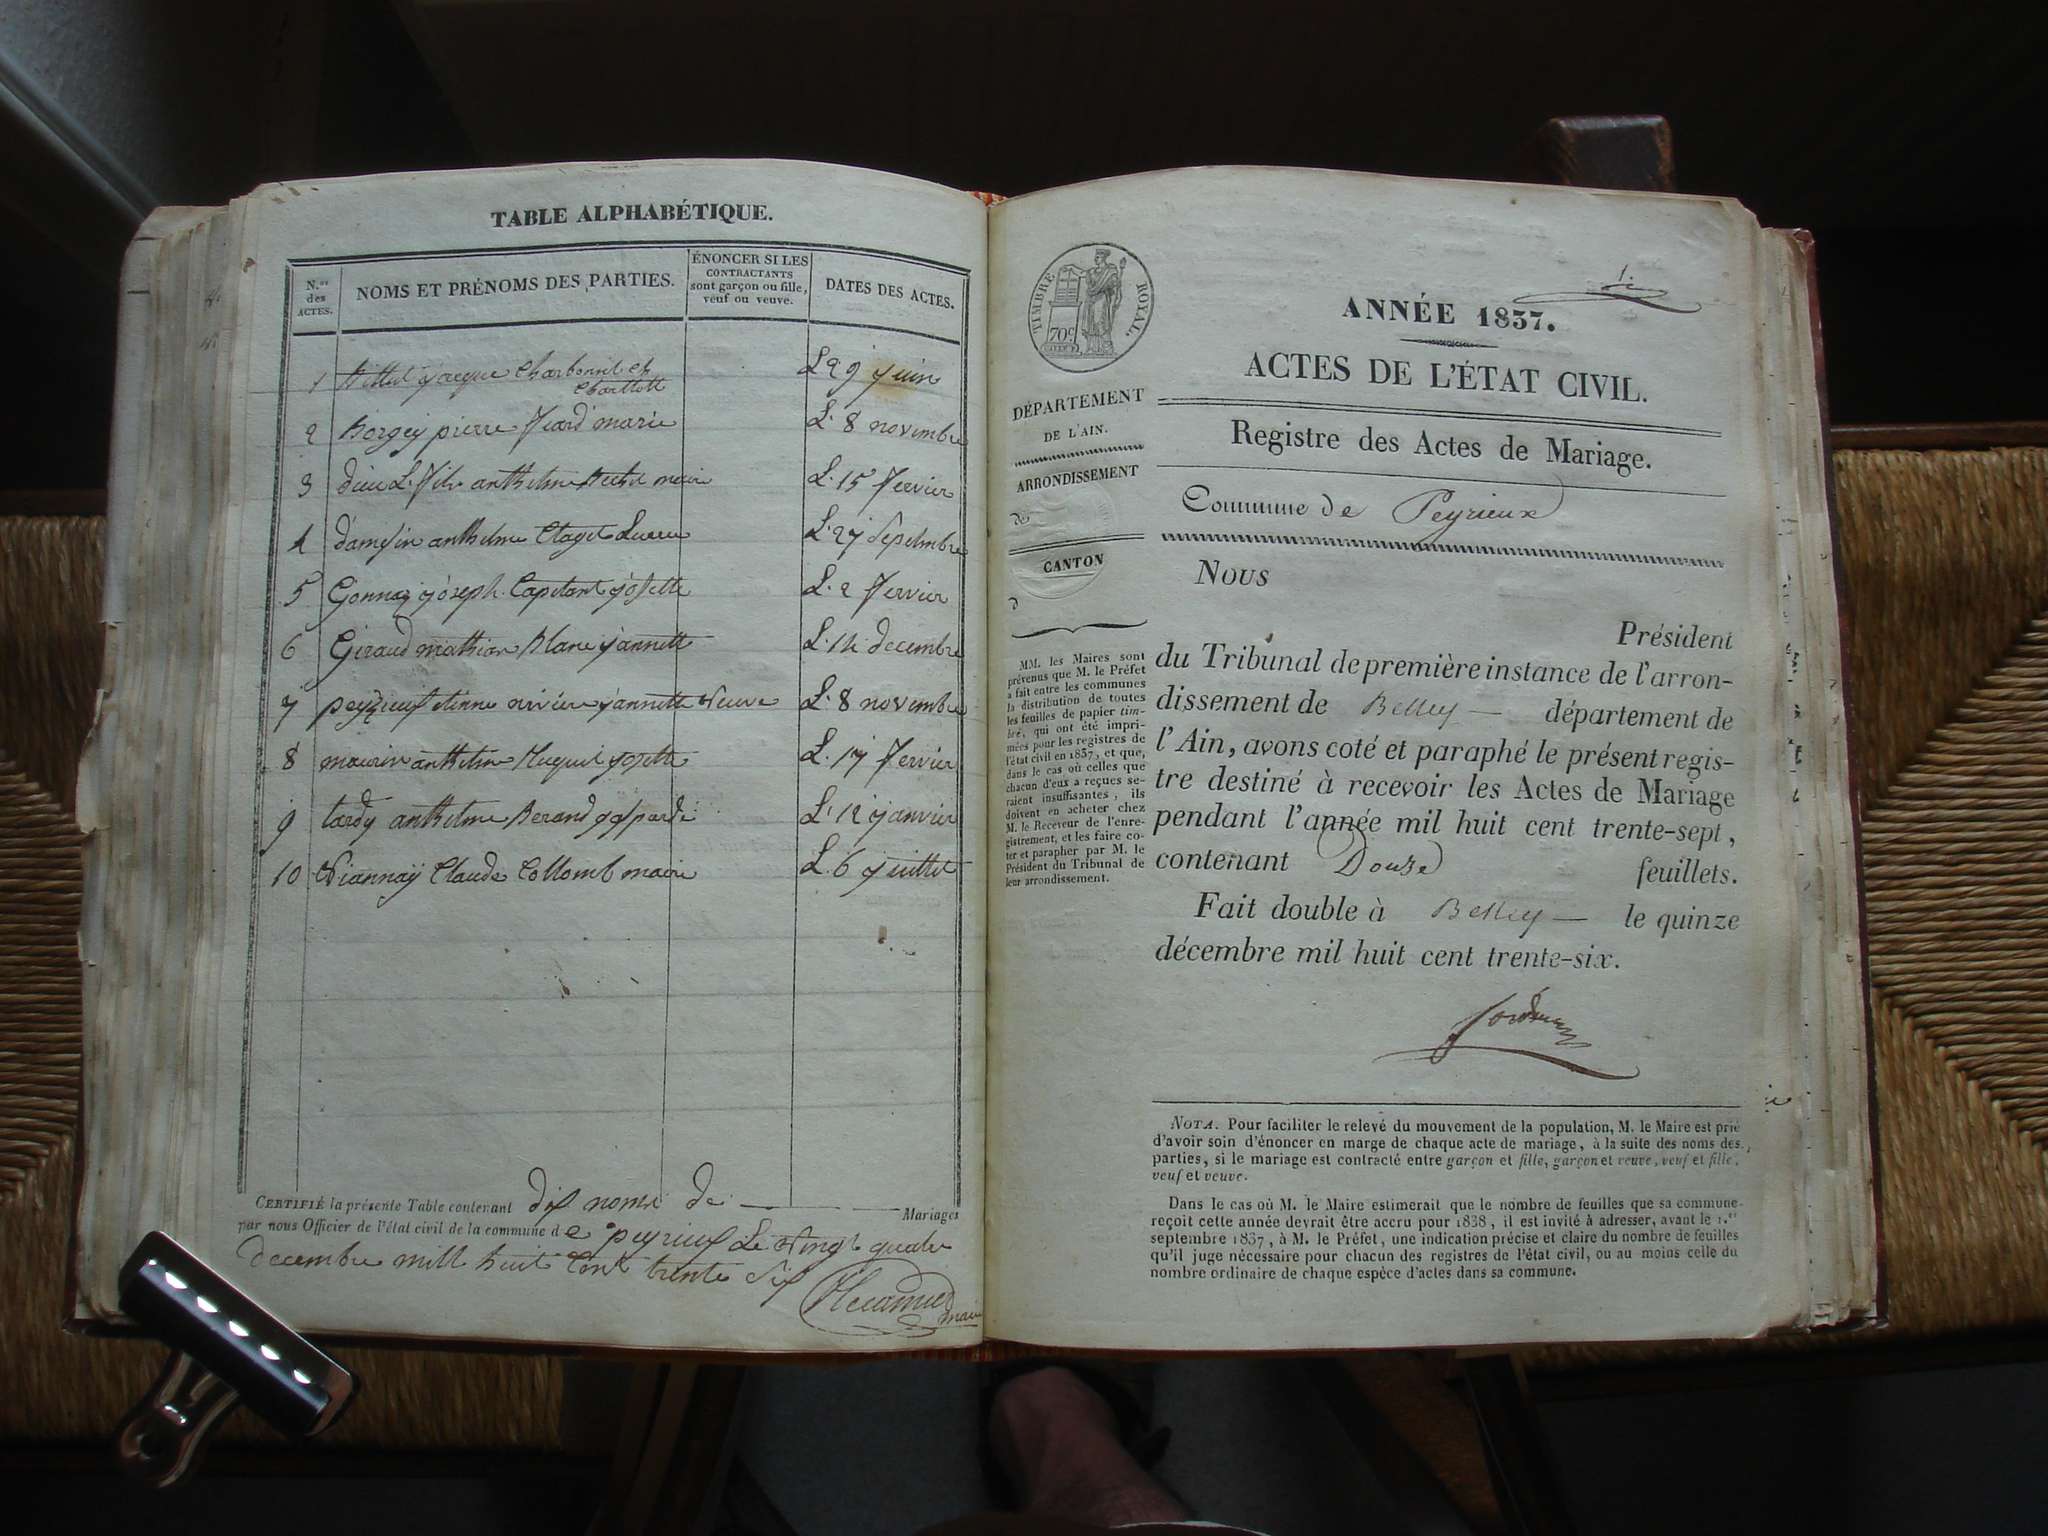 TABLE ALPHABÉTIQUE.
N.os des ACTES.
NOMS ET PRÉNOMS DES PARTIES.
ÉNONCER SI LES
CONTRACTANTS
sont garçon ou fille,
veuf ou veuve.
DATES DES ACTES.
1 jacque Charbonnet L 29 juin
Charlott
2 Borgey pierre marie L. 8 novembre
3 anthelme L. 15 fevrier
4 anthelme L. 27 Septembre
5 Gonnay joseph Capitant josette L. 2 fevrier
6 Giraud Blanc jannette L. 14 decembre
7 peyzieuf etienne rivière jannette veuve L. 8 novembre
8 maurin anthelme Huguet josette L. 17 fevrier
9 tardy anthelme Berand L. 12 janvier
10 Viannay Claude Collomb L. 6 juillet
CERTIFIÉ la présente Table contenant dix noms de Mariages
par nous Officier de l'état civil de la commune de peyrieuf Le vingt quatre
decembre mill huit Cent trente six
maire
1.
TIMBRE ROYAL.
70c
ANNÉE 1837.
ACTES DE L'ÉTAT CIVIL.
Registre des Actes de Mariage.
Commune de Peyrieux
DÉPARTEMENT
DE L'AIN.
ARRONDISSEMENT
de
CANTON
d
MM. les Maires sont
prévenus que M. le Préfet
a fait entre les communes
la distribution de toutes
les feuilles de papier tim-
bré, qui ont été impri-
mées pour les registres de
l'état civil en 1837, et que,
dans le cas où celles que
chacun d'eux a reçues se-
raient insuffisantes, ils
doivent en acheter chez
M. le Receveur de l'enre-
gistrement, et les faire co-
ter et parapher par M. le
Président du Tribunal de
leur arrondissement.
Nous
Président
du Tribunal de première instance de l'arron-
dissement de Belley département de
l'Ain, avons coté et paraphé le présent regis-
tre destiné à recevoir les Actes de Mariage
pendant l'année mil huit cent trente-sept,
contenant Douze feuillets.
Fait double à Belley le quinze
décembre mil huit cent trente-six.
NOTA. Pour faciliter le relevé du mouvement de la population, M. le Maire est prié
d'avoir soin d'énoncer en marge de chaque acte de mariage, à la suite des noms des
parties, si le mariage est contracté entre garçon et fille, garçon et veuve, veuf et fille,
veuf et veuve.
Dans le cas où M. le Maire estimerait que le nombre de feuilles que sa commune
reçoit cette année devrait être accru pour 1838, il est invité à adresser, avant le 1.er
septembre 1837, à M. le Préfet, une indication précise et claire du nombre de feuilles
qu'il juge nécessaire pour chacun des registres de l'état civil, ou au moins celle du
nombre ordinaire de chaque espèce d'actes dans sa commune.